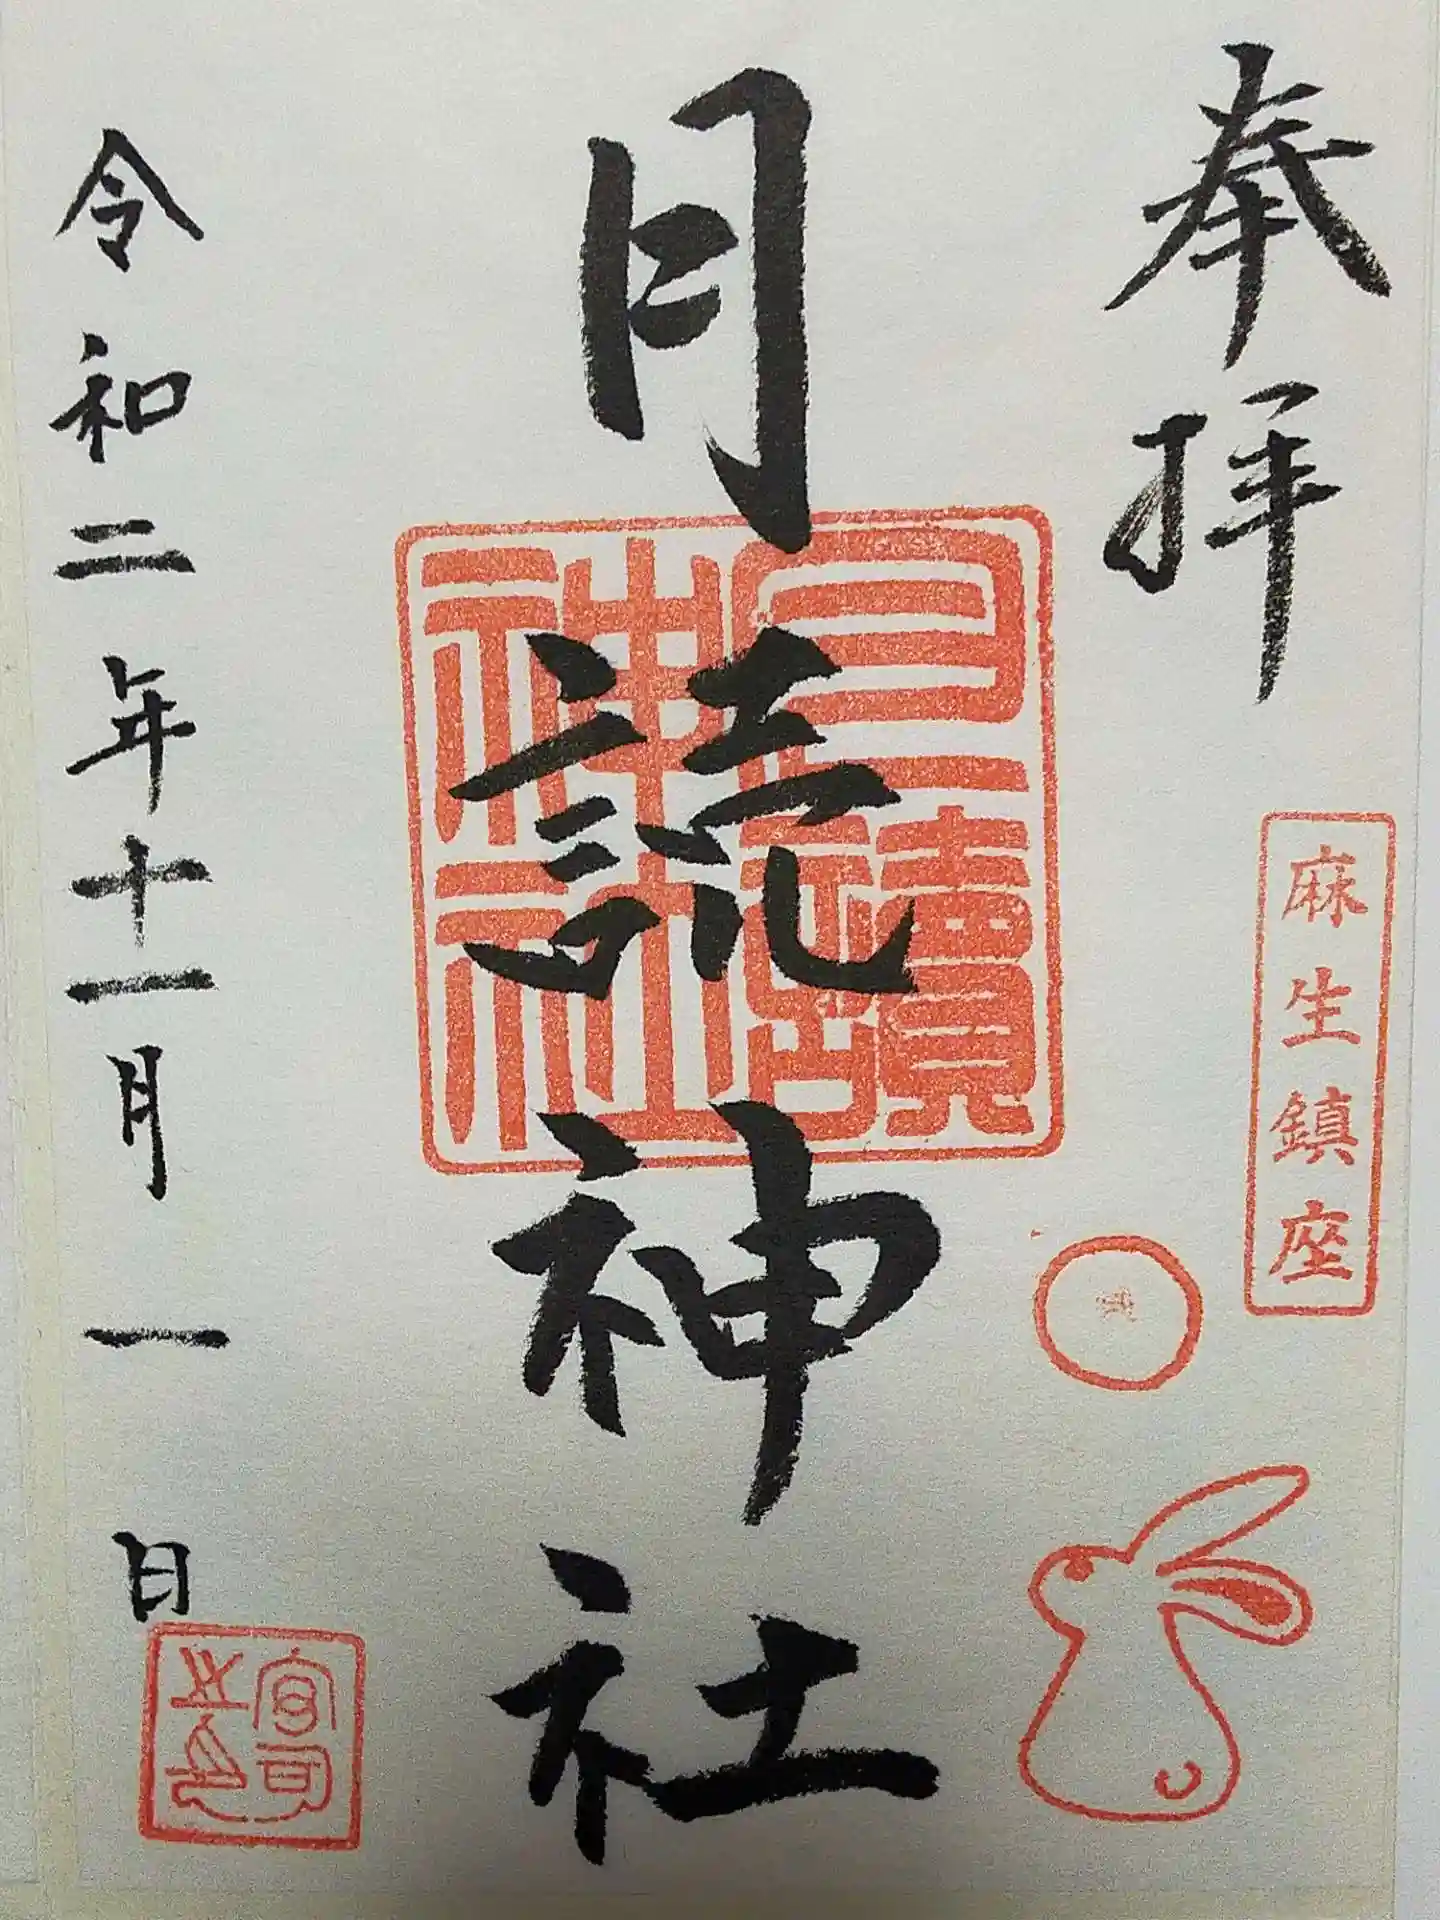 奉拝
麻生鎮座
月読神社
月讀神社
令和二年十一月一日
宮司之印